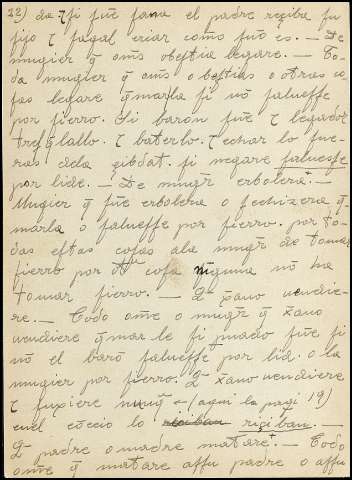 22) da ⁊ si fuẽ fana el padre reciba fu
fijo ⁊ fagal criar como fuẽ es. — De
mugier q̃ oms o beftia legare. — To-
da mugier q̃ oms o beftias o otras co-
fas legare quemarla fi nõ falueffe
por fierro. Si baron fuẽ ⁊ legador
trefquilallo. ⁊ baterlo. ⁊ echar lo fue-
ras dela cibdat. fi negare falueffe
por lide. — De mug̃r erbolera. —
Mugier q̃ fuẽ erbolera o fechizera que-
marla o falueffe por fierro. por to-
das eftas cofas ala mug̃r de tomar
fierro por cofa ninguna nõ ha
tomar fierro. — Qui xp̃ano vendie-
re. — Todo om̃e o mug̃r q̃ xp̃ano
vendiere quemar le fi provado fuẽ fi
nõ el barõ falueffe por lid. o la
mugier por fierro. Qui xp̃ano vendiere
⁊ fuxiere nunq̃ (aqui la pagi 19)
enel cõceio lo reciban reziban. —
Qui padre o madre matare. — Todo
om̃e q̃ matare affu padre o affu